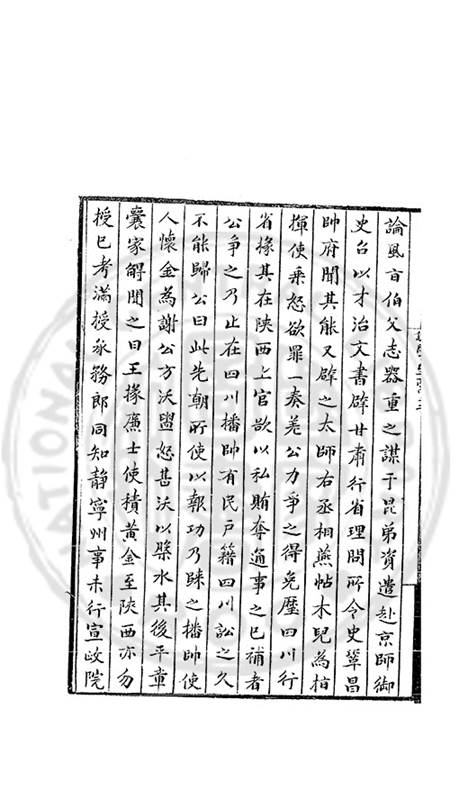 論風言伯父志器重之謀于昆弟資遣赴京師御
史台以才治文書辟甘肅行省理問所令史鞏昌
帥府聞其能又辟之太師右丞相燕帖木兒為指
揮使乘怒欲罪一奏差公力爭之得免歷四川行
省掾其在陝西上官欲以私賄奪通事之已補者
公爭之乃止在四川播帥有民戶籍四川訟之久
不能歸公曰此先朝所使以報功乃歸之播帥使
人懷金為謝公方沃盥怒甚沃以槃水其後平章
囊家解聞之曰王掾廉士使積黃金至陝西亦勿
授已考滿授承務郎同知靜寧州事未行宣政院
NATIONAL